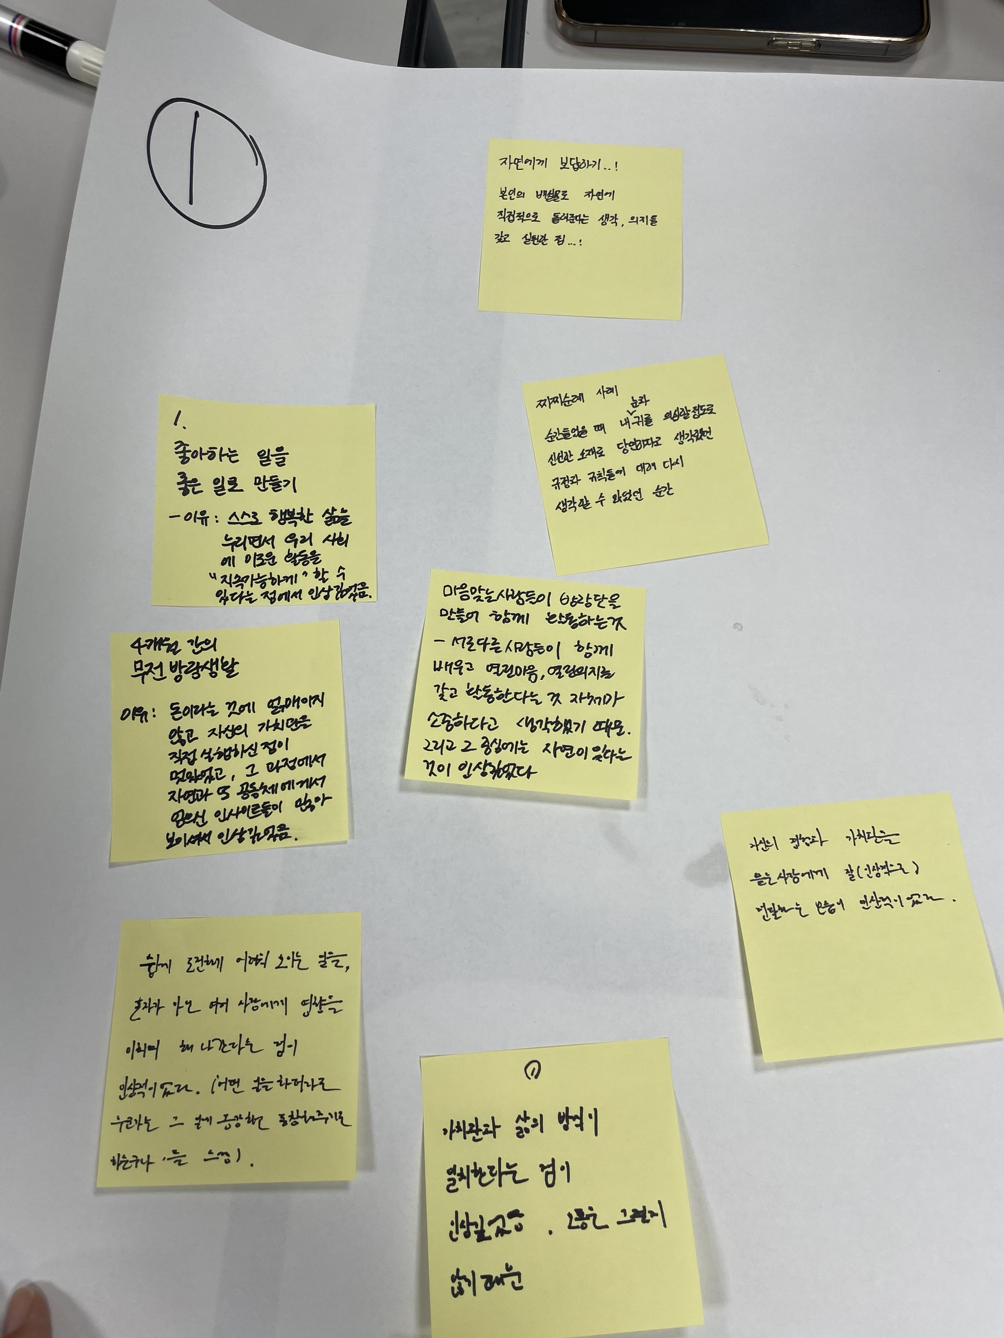 1
자연에게 보답하기..!
본인의 자연에
직접적으로 돌려준다는 생각, 의지를
갖고 실천한 점...!
찌찌순례 사례
순간들었을 때 내 눈과 귀를 의심할 정도로
신선한 소재로 당연하다고 생각했던
규정과 규칙들에 대해 다시
생각할 수 있었던 순간
1.
좋아하는 일을
좋은 일로 만들기
- 이유: 스스로 행복한 삶을
누리면서 우리 사회
에 이로운 활동을
"지속가능하게" 할 수
있다는 점에서 인상깊었음.
마음맞는사람들이 방랑단을
만들어 함께 활동하는것
- 서로다른 사람들이 함께
배우고 열린마음, 열린의지를
갖고 활동한다는 것 자체가
소중하다고 생각했기 때문.
그리고 그 중심에는 자연이 있다는
것이 인상깊었다
4개월 간의
무전 방랑생활
이유: 돈이라는 것에 얽매이지
않고 자신의 가치만을
직접 실행하신 점이
멋있었고, 그 과정에서
자연과 또 공동체에게서
얻으신 인사이트들이 많아
보이셔서 인상깊었음.
자신의 경험과 가치관을
듣는사람에게 잘(인상적으로)
전달하는 모습이 인상적이었다.
쉽게 도전하기 어려워 보이는 일을,
혼자가 아닌 여러 사람에게 영향을
미치며 해 나간다는 점이
인상적이었다. (어떤 일을 하더라도
누군가는 그 일에 공감하고 동참해주기도
하는구나 를 느낌).
①
가치관과 삶의 방식이
일치한다는 점이
인상깊었음. 보통은 그렇지
않기 때문